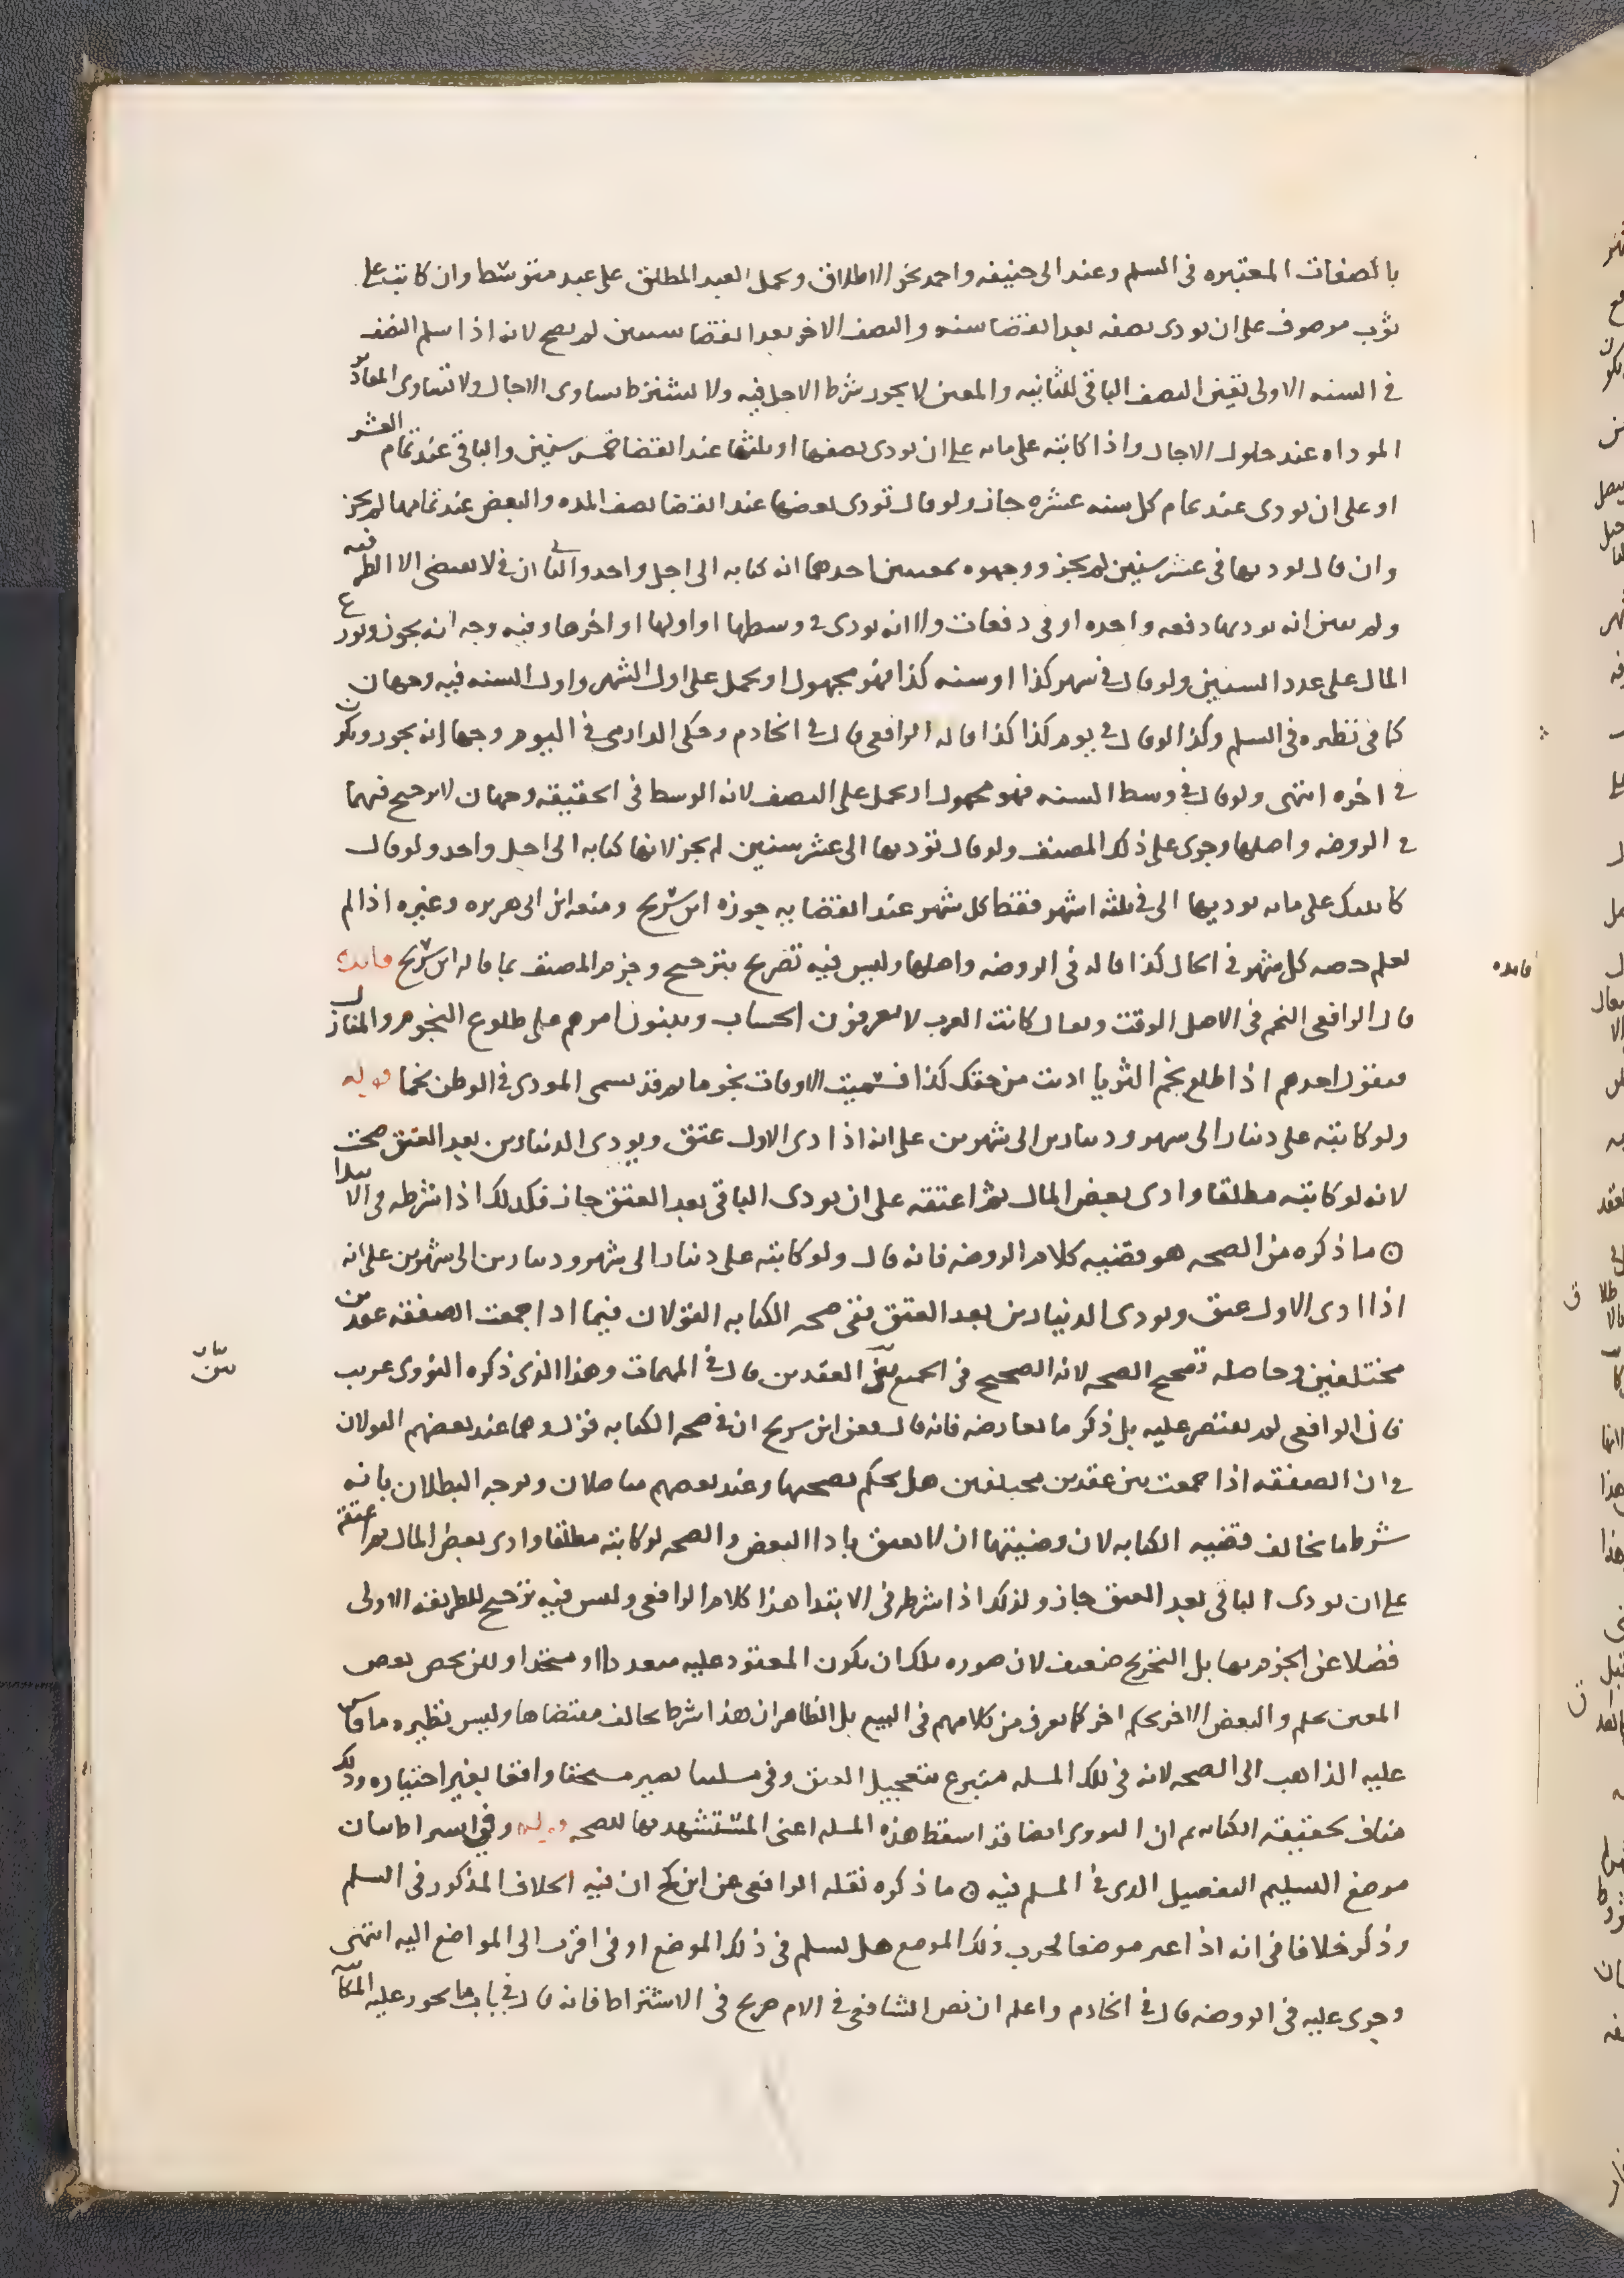 بالصفات المعتبره في السلم وعند ابي حنيفه واحمد يجوز الاطلاق ويحمل العبد المطلق على عبد متوسط وان كاتبه على
ثوب موصوف على ان يودى نصفه بعد انقضا سنه والنصف الاخر بعد انقضا سنتين لم يصح لانه اذا سلم النصف
في السنه الاولى تعين النصف الباقي للثانيه والمعين لا يجوز شرط الاجل فيه ولا يشترط تساوى الاجال ولا تساوى المقادير
الموداه عند حلول الاجال واذا كاتبه على مايه على ان يودى نصفها او ثلثها عند انقضا خمس سنين والباقي عند تمام العشر
او على ان يودى عند تمام كل سنه عشره جاز ولو قال تودى بعضها عند انقضا نصف المده والبعض عند تمامها لم يجز
وان قال يوديها في عشر سنين لم يجز ووجهوه بمعنيين احدهما انه كتابه الى اجل واحد والثاني ان في لا يقتضى الا الظرفيه
ولم يبين انه يوديها دفعه واحده او في دفعات ولا انه يودى في وسطها او اولها او اخرها وفيه وجه انه يجوز ويوزع
المال على عدد السنين ولو قال في شهر كذا او سنه كذا فهو مجهول او يحمل على اول الشهر واول السنه فيه وجهان
كما في نظيره في السلم وكذا لو قال في يوم كذا كذا قاله الرافعي قال في الخادم وحكى الدارمي في اليوم وجها انه يجوز ويكون
في اخره انتهى ولو قال في وسط السنه فهو مجهول او يحمل على النصف لانه الوسط في الحقيقه وجهان لا ترجيح فيهما
في الروضه واصلها وجرى على ذلك المصنف ولو قال تؤديها الى عشر سنين لم يجز لانها كتابه الى اجل واحد ولو قال
كاتبتك على مايه توديها الى في ثلثه اشهر فقط كل شهر عند انقضايه جوزه ابن سريج ومنعه ابن ابي هريره وغيره اذا لم
يعلم حصه كل شهر في الحال كذا قاله في الروضه واصلها وليس فيه تصريح بترجيح وجزم المصنف بما قاله ابن سريج فايده
فايده
قال الرافعي النجم في الاصل الوقت ويقال كانت العرب لا يعرفون الحساب ويبنون امرهم على طلوع النجوم والمنازل
فيقول احدهم اذا طلع نجم الثريا اديت من حقك كذا فسميت الاوقات نجوما ثم قد يسمى المودى في الوطن نجما قوله
ولو كاتبه على دينار الى شهر ودينارين الى شهرين على انه اذا ادى الاول عتق ويودى الدينارين بعد العتق صحت
لانه لو كاتبه مطلقا وادى بعض المال ثم اعتقه على ان يودى الباقي بعد العتق جاز فكذلك اذا شرطه في الابتدا
ما ذكره من الصحه هو قضيه كلام الروضه فانه قال ولو كاتبه على دينار الى شهر ودينارين الى شهرين على انه
اذا ادى الاول عتق ويودى الدينارين بعد العتق ففي صحه الكتابه القولان فيما اذا جمعت الصفقه عقدين
مختلفين وحاصله تصحيح الصحه لانه الصحيح في الجمع بين العقدين قال في المهمات وهذا الذي ذكره النووى غريب
فان الرافعي لم يقتصر عليه بل ذكر ما يعارضه فانه قال وعن ابن سريج ان في صحه الكتابه قولين وهما عند بعضهم القولان
في ان الصفقه اذا جمعت بين عقدين مختلفين هل يحكم بصحتها وعند بعضهم متاصلان ويوجه البطلان بانه
شرط ما يخالف قضيه الكتابه لان قضيتها ان لا يعتق بادا البعض والصحه لو كاتبه مطلقا وادى بعض المال ثم اعتقه
على ان يودى الباقي بعد العتق جاز وكذلك اذا شرطه في الابتدا هذا كلام الرافعي وليس فيه ترجيح للطريقه الاولى
فضلا عن الجزم بها بل التخريج ضعيف لان صوره تلك ان يكون المعقود عليه متعددا او متحدا ولكن يخص بعض
المعين بحكم والبعض الاخر بحكم اخر كما يعرف من كلامهم في البيع بل الظاهر ان هذا شرط يخالف مقتضاها وليس نظيره ما قاس
عليه الذاهب الى الصحه لانه في تلك المسله متبرع بتعجيل العتق وفي مسلتنا يصير مستحقا واقعا بغير اختياره وذلك
مناف لحقيقه الكتابه ثم ان النووى ايضا قد اسقط هذه المسله اعنى المستشهد بها للصحه قوله وفي اشتراط بيان
موضع التسليم التفصيل الذى في المسلم فيه ما ذكره نقله الرافعي عن ابن كج ان فيه الخلاف المذكور في السلم
وذكر خلافا في انه اذا عين موضعا فخرب ذلك الموضع هل يسلم في ذلك الموضع او في اقرب الى المواضع اليه انتهى
وجرى عليه في الروضه قال في الخادم واعلم ان نص الشافعي في الام صريح في الاشتراط فانه قال في باب ما يجوز عليه المكاتبه